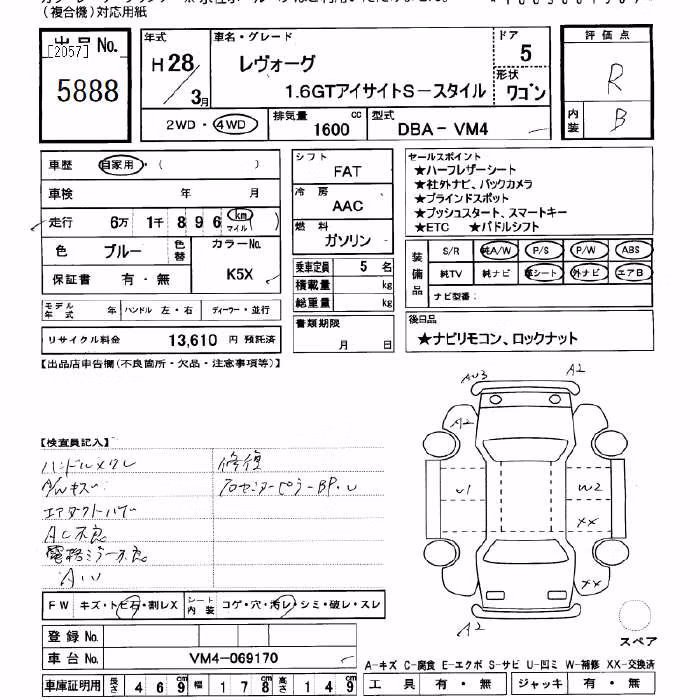 (複合機)対応用紙
出品No.
[2057]
5888
年式
H28/3月
車名・グレード
レヴォーグ
1.6GTアイサイトS-スタイル
ドア
5
形状
ワゴン
評価点
R
内装
B
2WD・4WD
排気量
1600 cc
型式
DBA-VM4
車歴 自家用・( )
車検 年 月
走行 6万 1千 8 9 6 km マイル
色 ブルー 色替
カラーNo.
K5X
保証書 有・無
モデル年式 年 ハンドル 左・右 ディーラー・並行
リサイクル料金 13,610 円 預託済
シフト
FAT
冷房
AAC
燃料
ガソリン
乗車定員 5 名
積載量 kg
総重量 kg
書類期限
月 日
セールスポイント
★ハーフレザーシート
★社外ナビ、バックカメラ
★ブラインドスポット
★プッシュスタート、スマートキー
★ETC ★パドルシフト
装備品
S/R 純A/W P/S P/W ABS
純TV 純ナビ 革シート 外ナビ エアB
ナビ型番:
後日品
★ナビリモコン、ロックナット
【出品店申告欄(不良箇所・欠品・注意事項等)】
【検査員記入】
ハンドルスレ
A/Wキズ
エアダクトハゲ
AC不良
電格ミラー不良
修復
A2
A2
U1
W2
XX
XX
A2
FW キズ・トビ石・割レX シート内装 コゲ・穴・汚レ・シミ・破レ・スレ
登録No.
車台No. VM4-069170
車庫証明用 長さ 4 6 9 cm 幅 1 7 8 cm 高さ 1 4 9 cm
スペア
A-キズ C-腐食 E-エクボ S-サビ U-凹ミ W-補修 XX-交換済
工具 有・無 ジャッキ 有・無